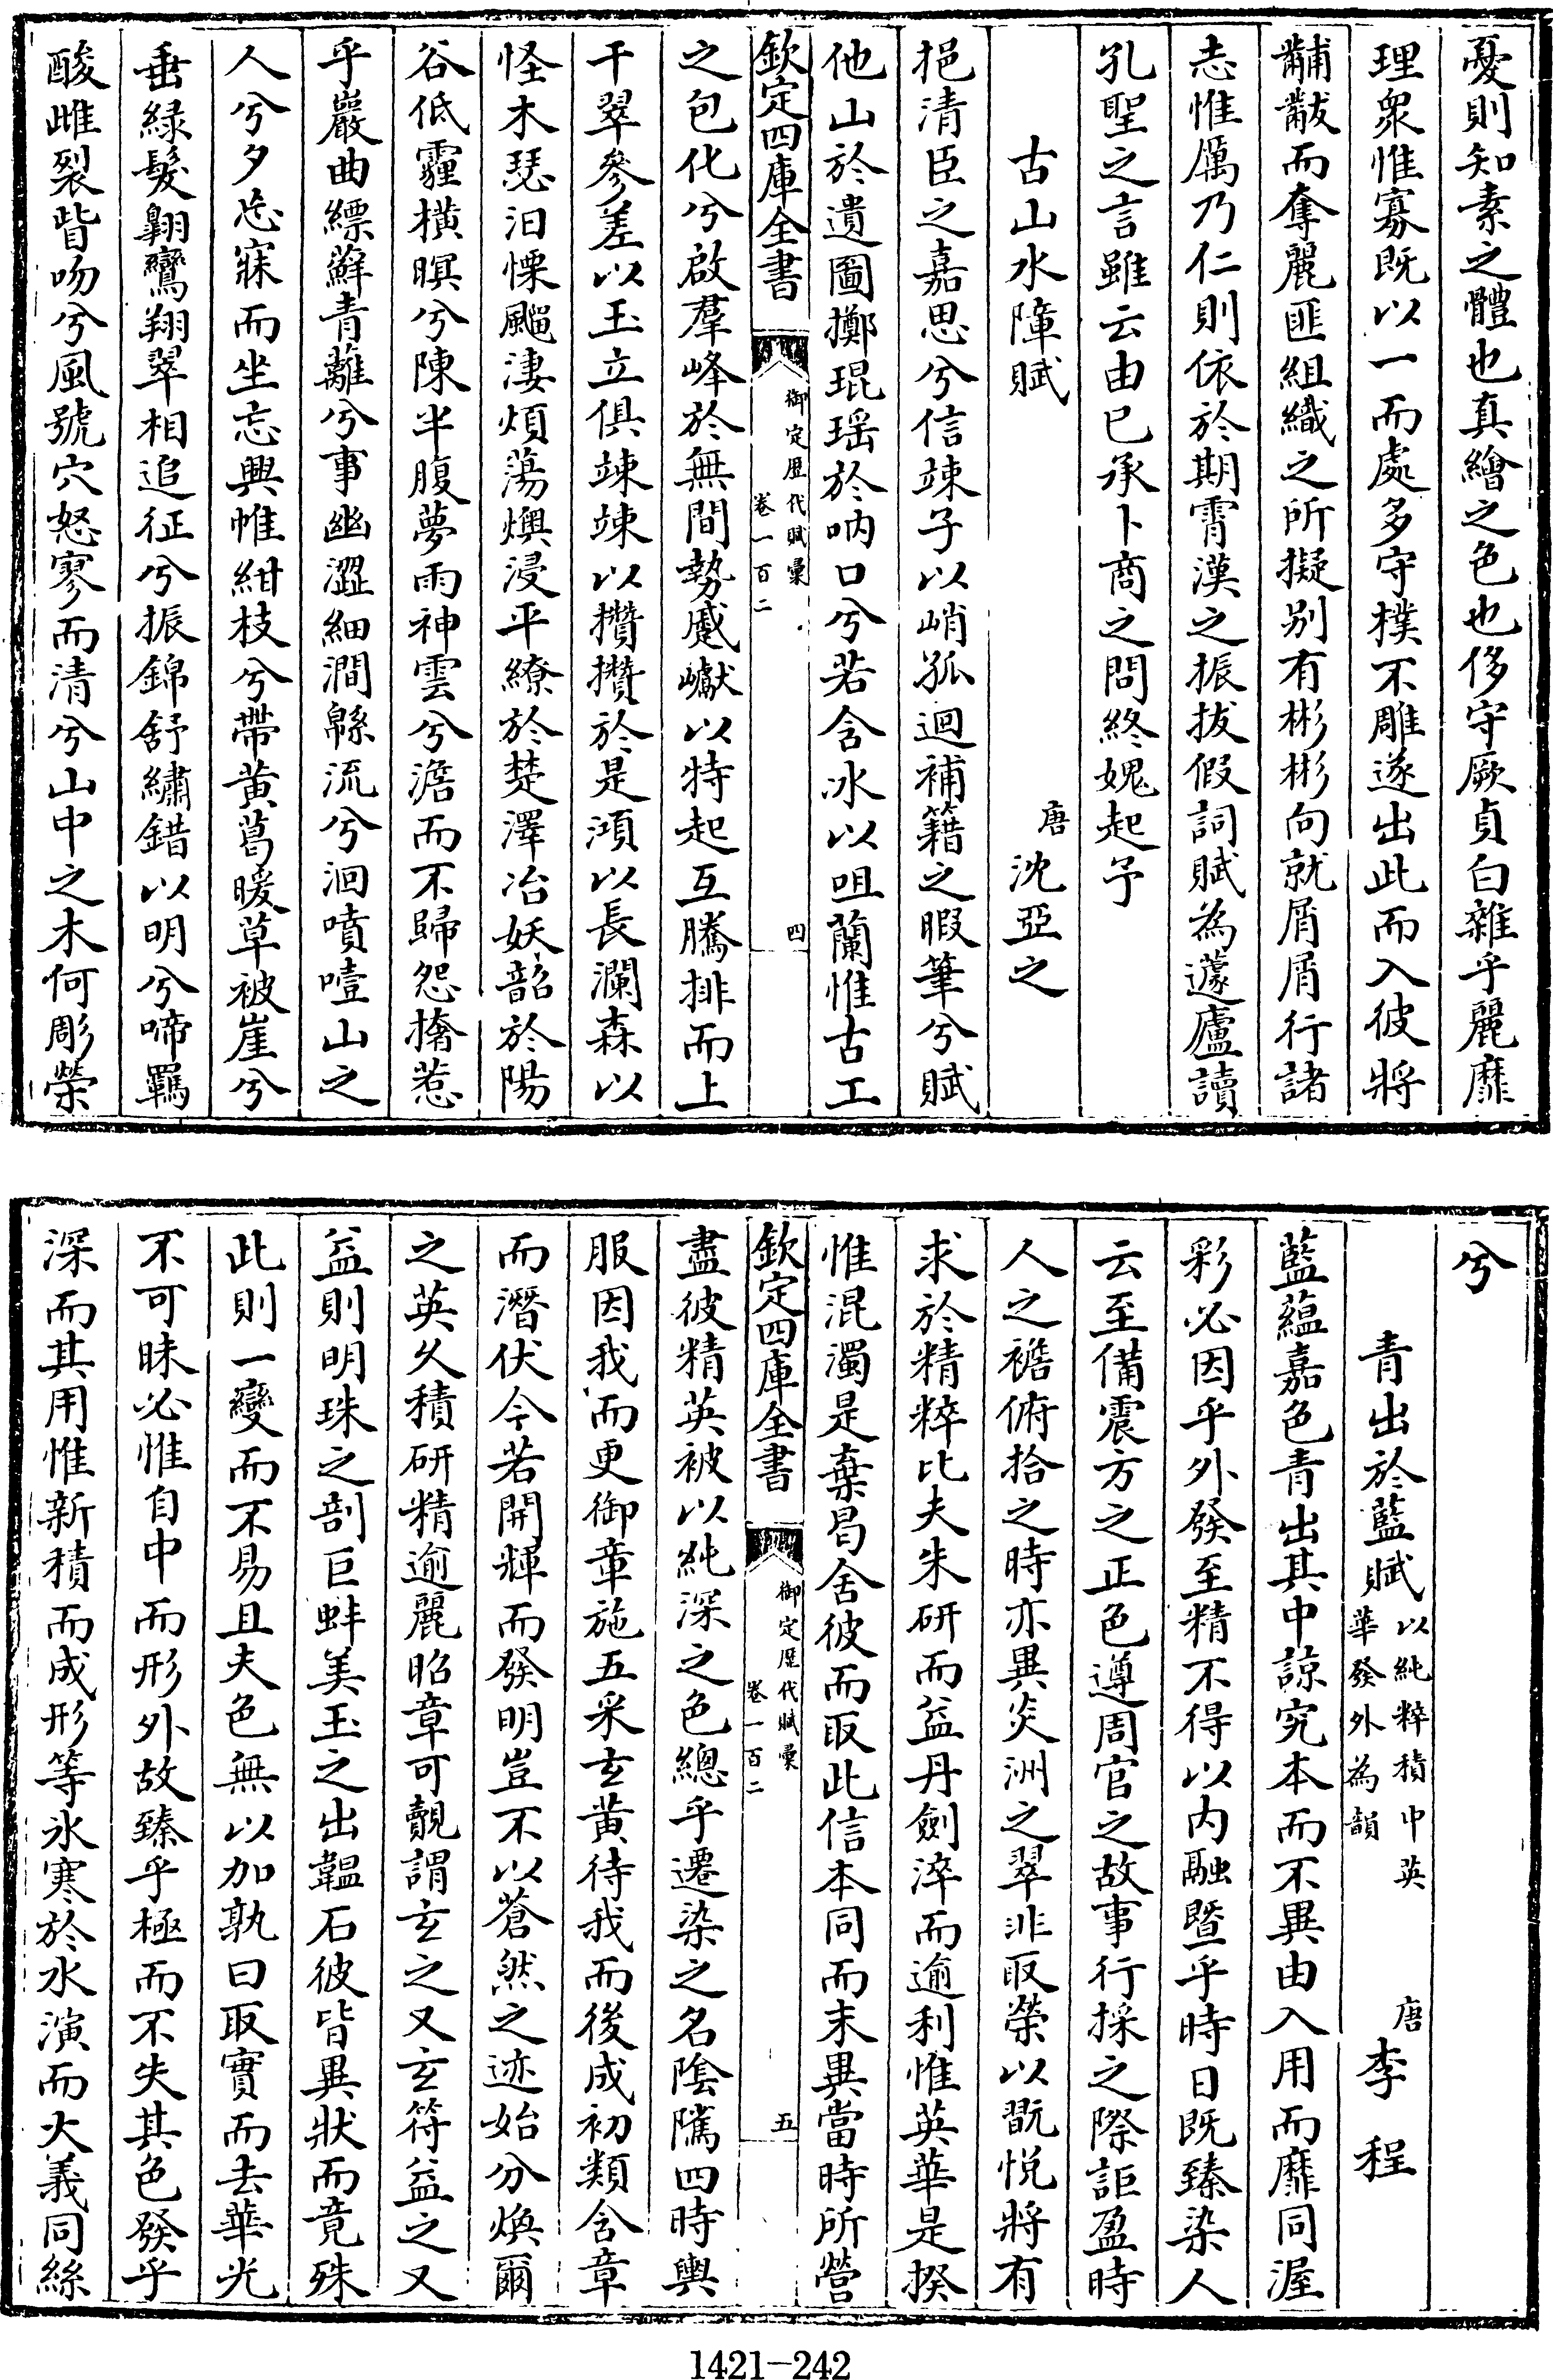 憂則知素之體也真繪之色也侈守厥貞白雜乎麗靡
理衆惟寡既以一而處多守樸不雕遂出此而入彼將
黼黻而奪麗匪組織之所擬別有彬彬向就屑屑行諸
志惟厲乃仁則依於期霄漢之振拔假詞賦為蘧廬讀
孔聖之言雖云由已承卜商之問終媿起予
古山水障賦 唐 沈亞之
挹清臣之嘉思兮信竦子以峭孤迴補籍之暇筆兮賦
他山於遺圖擲琨瑤於吶口兮若含冰以咀蘭惟古工
欽定四庫全書 御定歷代賦彙 卷一百二 四
之包化兮啟羣峰於無間勢巇巘以特起互騰排而上
干翠參差以玉立俱竦竦以攢攢於是澒以長瀾森以
怪木瑟汩慄颸淒煩蕩燠浸平繚於楚澤冶妖韶於陽
谷低霾橫暝兮陳半腹夢雨神雲兮澹而不歸怨擕惹
乎巖曲縹蘚青離兮事幽澀細澗緜流兮洄噴噎山之
人兮夕忘寐而坐忘興帷紺枝兮帶黃葛暖草被崖兮
垂綠髮翺鸞翔翠相追征兮振錦舒繡錯以明兮啼羈
酸雌裂眥吻兮風號穴怒寥而清兮山中之木何彫榮
兮
青出於藍賦 以純粹積中英華發外為韻 唐 李程
藍蘊嘉色青出其中諒究本而不異由入用而靡同渥
彩必因乎外發至精不得以內融暨乎時日既臻染人
云至備震方之正色遵周官之故事行採之際詎盈時
人之襜俯拾之時亦異炎洲之翠非取榮以翫悅將有
求於精粹比夫朱研而益丹劍淬而逾利惟英華是揆
惟混濁是棄曷舍彼而取此信本同而末異當時所營
欽定四庫全書 御定歷代賦彙 卷一百二 五
盡彼精英被以純深之色總乎遷染之名陰隲四時輿
服因我而更御章施五采玄黃待我而後成初類含章
而潛伏今若開輝而發明豈不以蒼然之迹始分煥爾
之英久積研精逾麗昭章可覿謂玄之又玄符益之又
益則明珠之剖巨蚌美玉之出韞石彼皆異狀而竟殊
此則一變而不易且夫色無以加孰曰取實而去華光
不可昧必惟自中而形外故臻乎極而不失其色發乎
深而其用惟新積而成形等氷寒於水演而大義同絲
1421-242